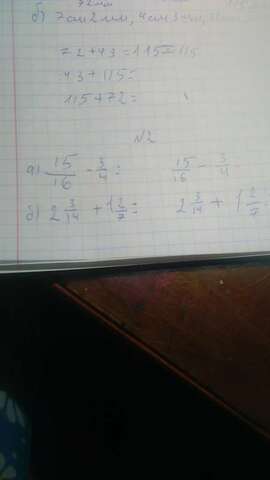 72мм
б) 7см2мм, 4см3мм,
72+43=115=115
43+115=
115+72=
N2
а) 15/16 - 3/4 = 15/16 - 3/4
б) 2 3/14 + 1 2/7 = 2 3/14 + 1 2/7